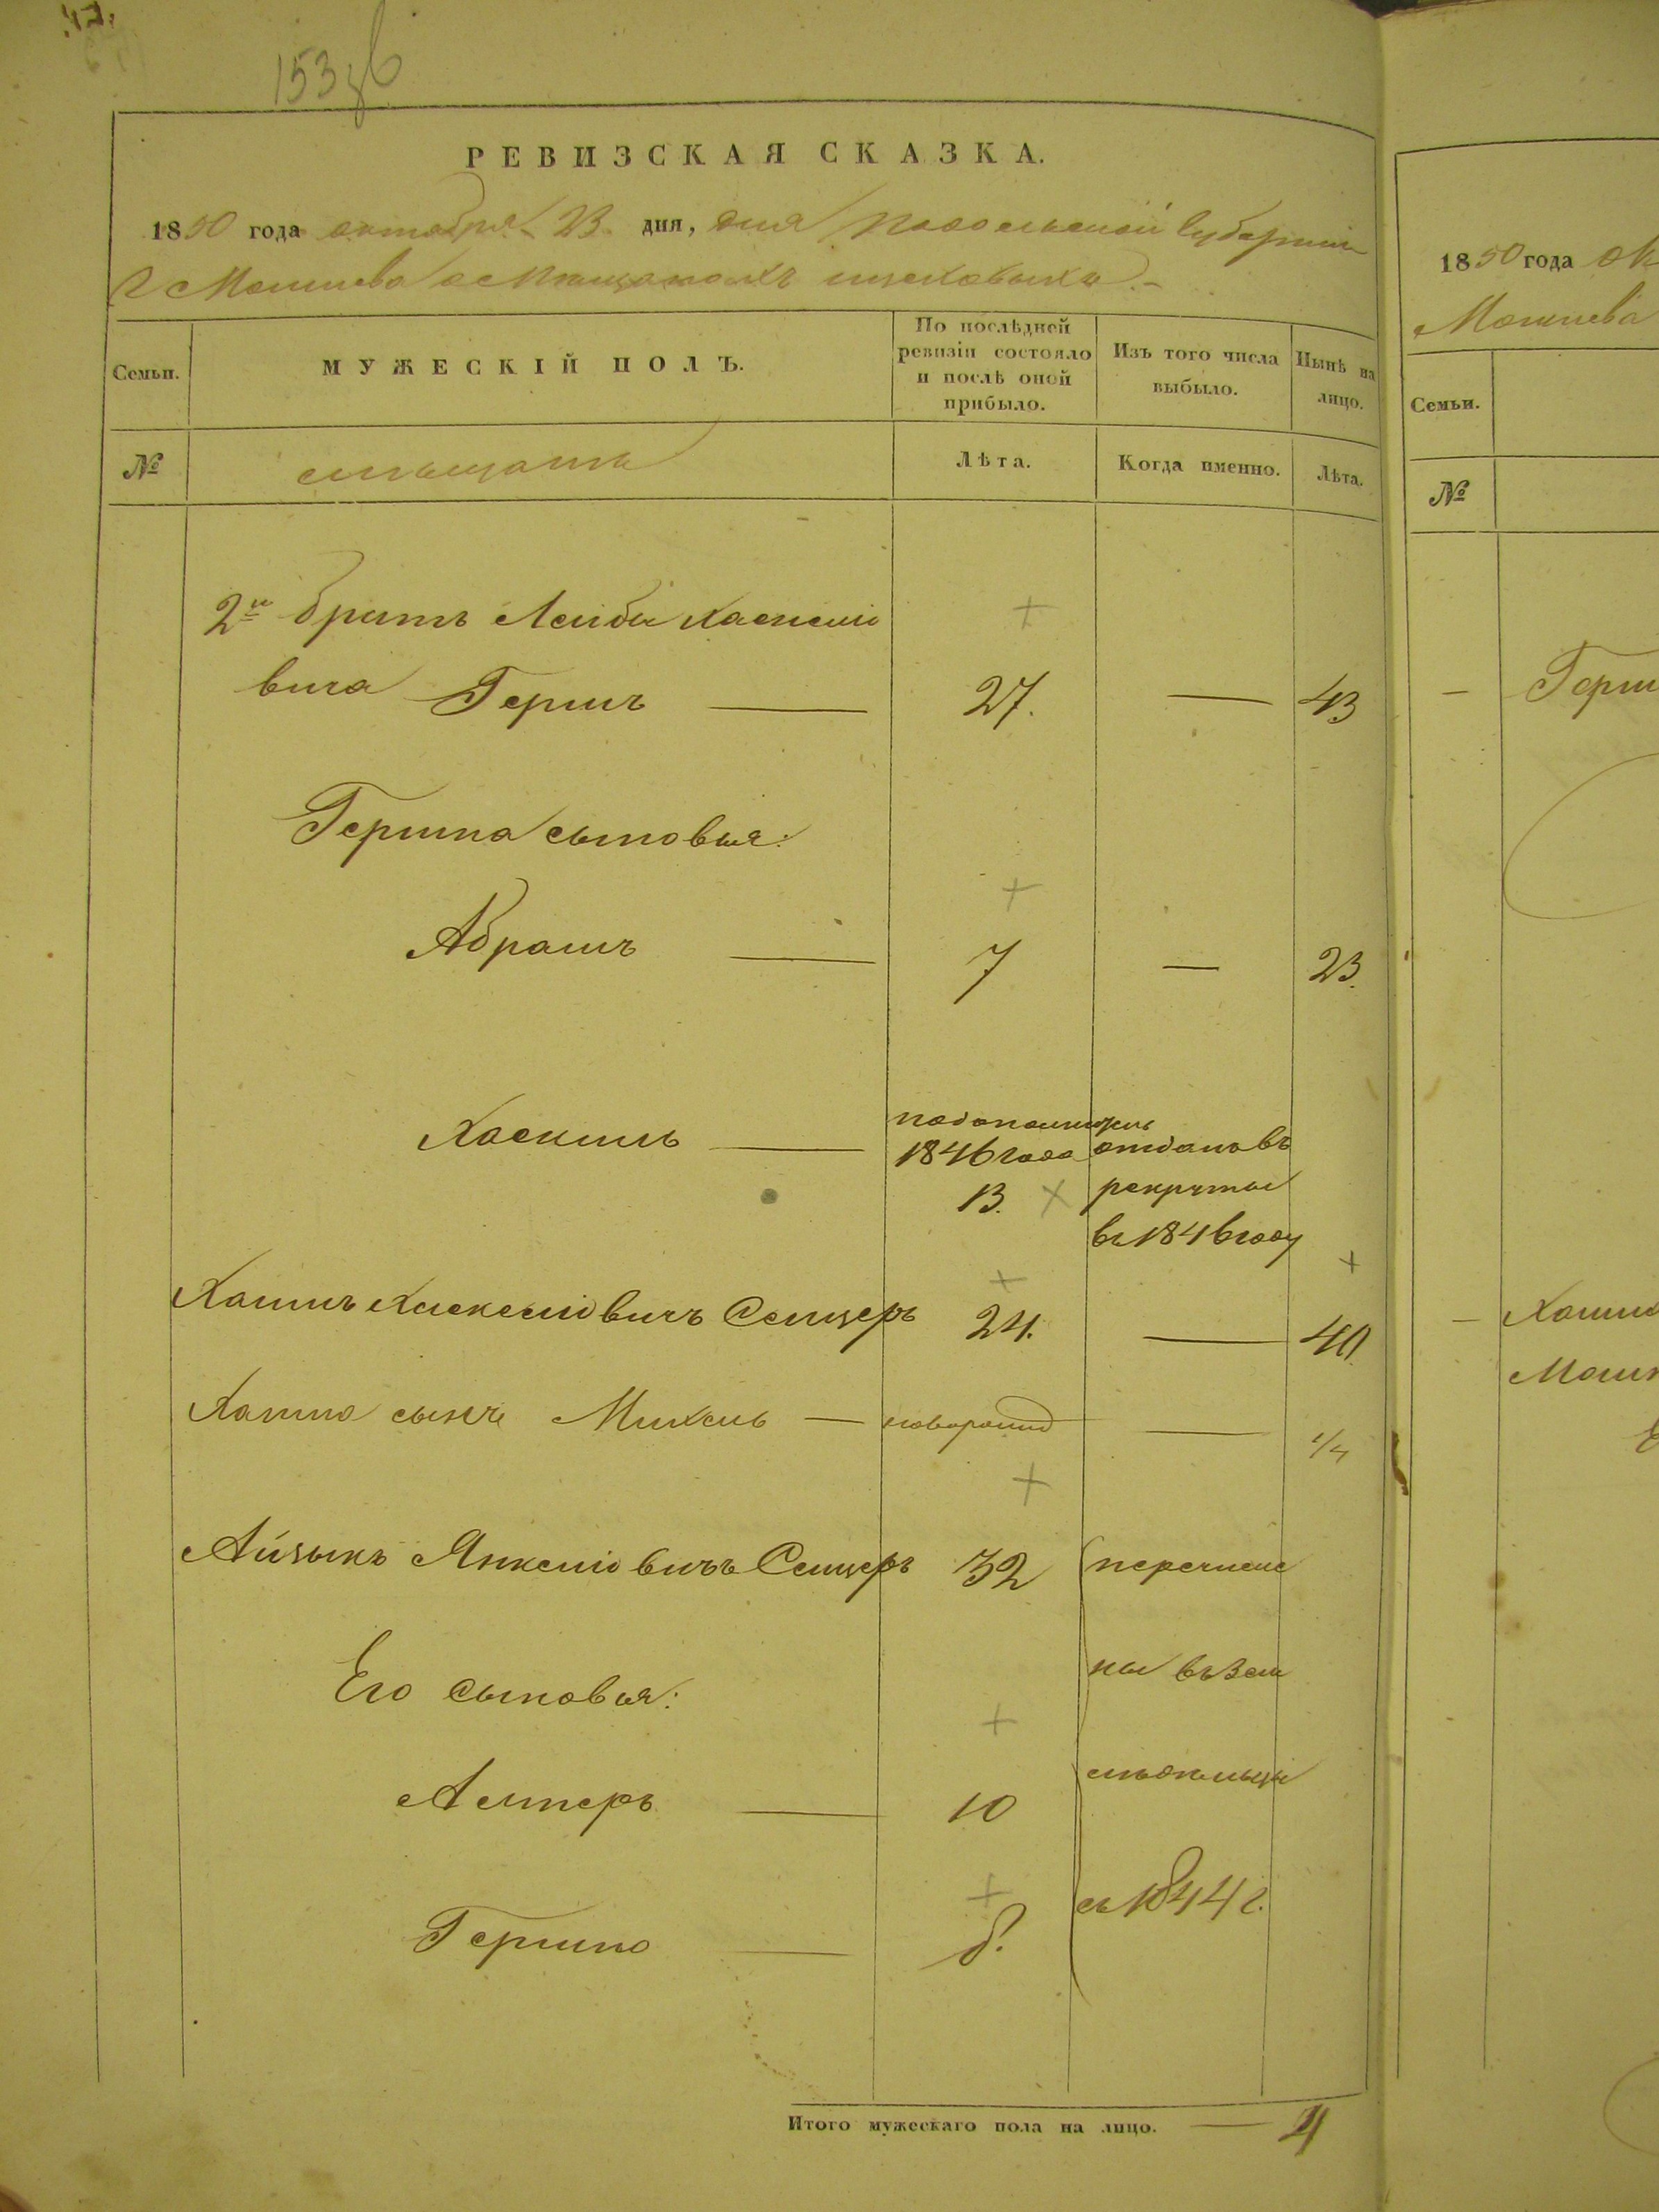 153
РЕВИЗСКАЯ СКАЗКА.
1850 года октября 23 дня, дня Подольской Губернии
о Мещанахъ
Семьи.
МУЖЕСКІЙ ПОЛЪ.
По послѣдней ревизіи состояло и послѣ оной прибыло.
Изъ того числа выбыло.
Нынѣ на лицо.
№
Лѣта.
Когда именно.
Лѣта.
2й братъ Лейбы Хаскелио
вича Гершъ — 27. — 43
Гершка сыновья:
Абрамъ — 7 — 23.
Хаскиль —
1846 года
13.
отданъ въ
рекруты
въ 1846 году
Хаимъ Хаскелиовичъ Селцеръ 24. — 40.
Хаима сынъ Михель — новорожд — 1/4
Айзыкъ Янкелиовичъ Селцеръ 32 перечисле
ны въ Зем
Его сыновья:
Алтеръ — 10
съ 1844 г.
Гершко — 8.
Итого мужескаго пола на лицо. — 4
1850 года ок
Семьи.
№
— Герш
— Хаима